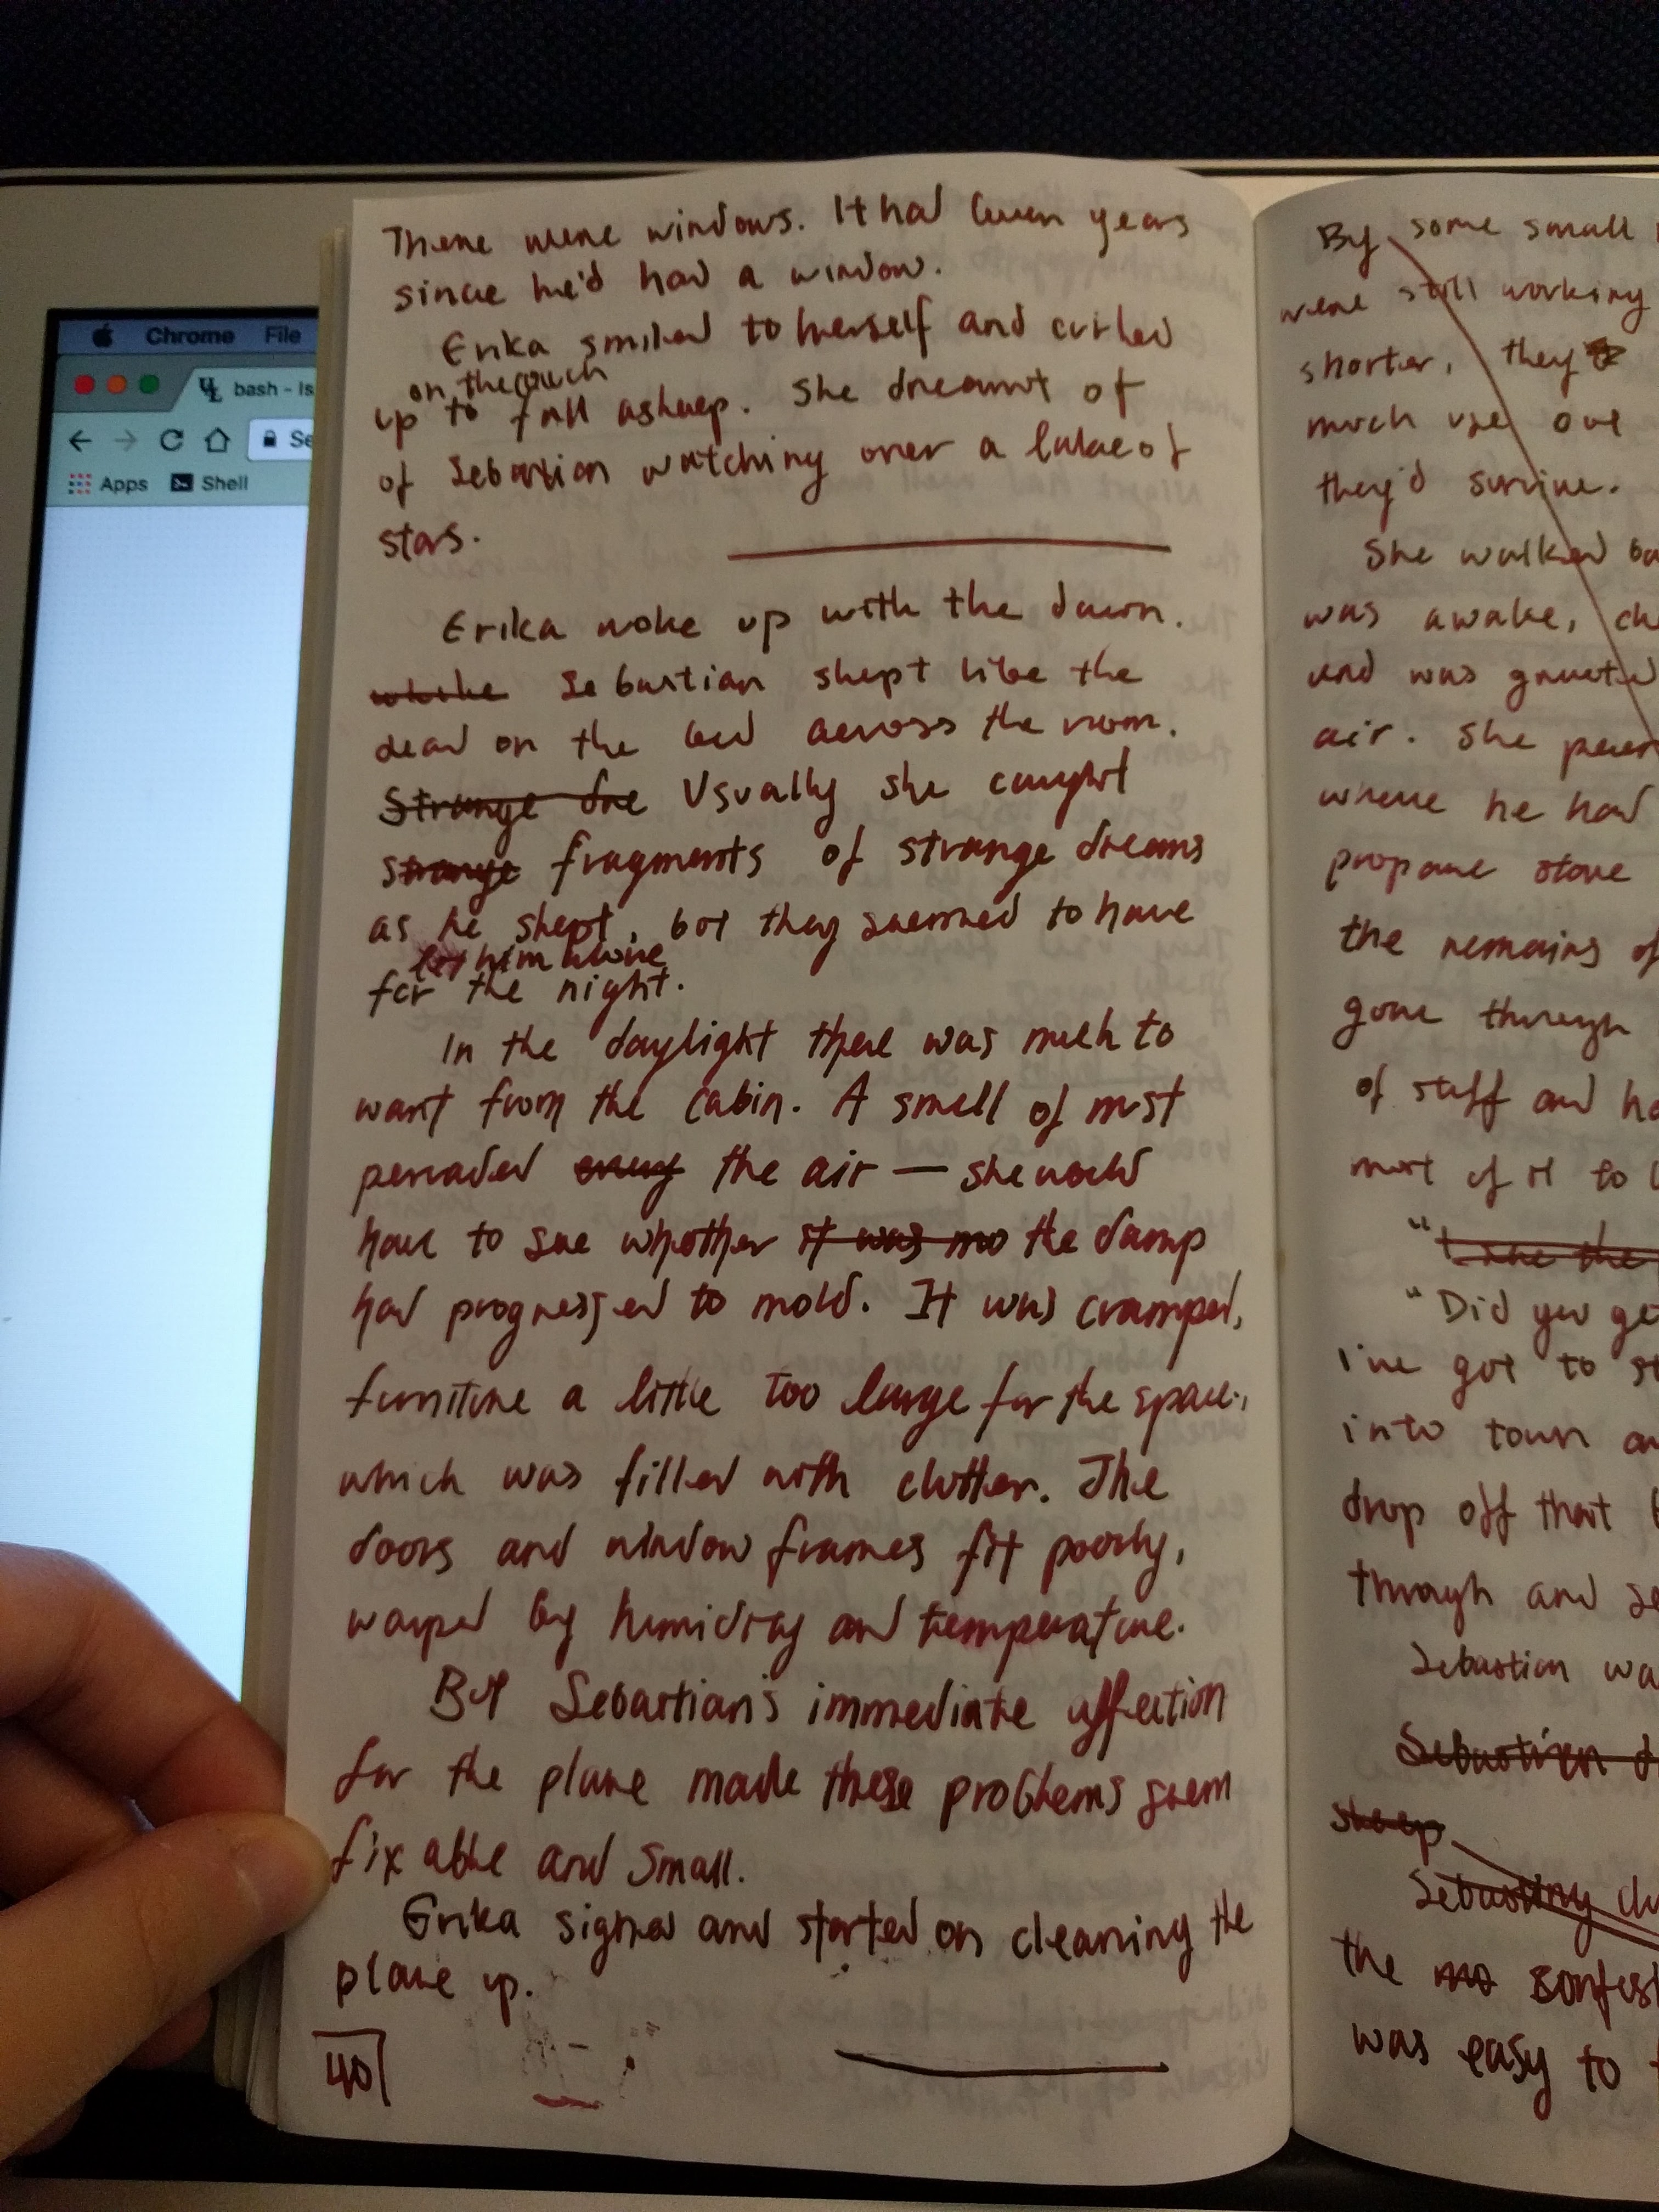 Chrome File
bash - ls
Apps Shell
There were windows. It had been years
since he'd had a window.
Erika smiled to herself and curled
on the couch
up to fall asleep. She dreamt of
of Sebastian watching over a lake of
stars.
Erika woke up with the dawn.
while Sebastian slept like the
dead on the bed across the room.
Strange dre Usually she caught
strange fragments of strange dreams
as he slept, but they seemed to have
let him alone
for the night.
In the daylight there was much to
want from the cabin. A smell of must
pervaded every the air — she would
have to see whether it was mo the damp
had progressed to mold. It was cramped,
furniture a little too large for the space,
which was filled with clutter. The
doors and window frames fit poorly,
warped by humidity and temperature.
But Sebastian's immediate affection
for the place made these problems seem
fixable and small.
Erika sighed and started on cleaning the
place up.
40
By some small
were still working
shorter, they
much use out
they'd survive.
She walked ba
was awake, ch
and was greeted
air. She peer
where he had
propane stove
the remains of
gone through
of stuff and ha
most of it to
"I see the
"Did you ge
I've got to st
into town an
drop off that
through and se
Sebastian wa
Sebastian d
sleep
Sebastian cl
the
was easy to